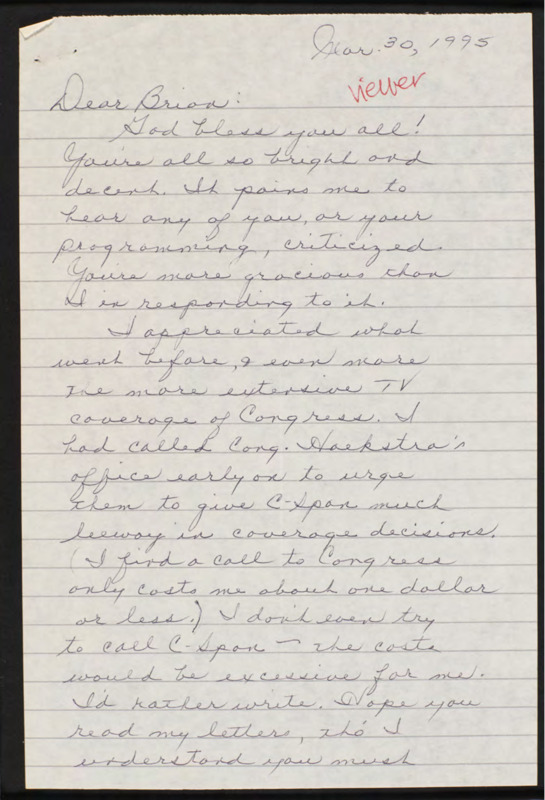 Mar. 30, 1995
viewer
Dear Brian:
God bless you all!
You're all so bright and
decent. It pains me to
hear any of you, or your
programming, criticized.
You're more gracious than
I in responding to it.
I appreciated what
went before, & even more
the more extensive TV
coverage of Congress. I
had called Cong. Hoekstra's
office early on to urge
them to give C-Span much
leeway in coverage decisions.
(I find a call to Congress
only costs me about one dollar
or less.) I don't even try
to call C-Span — the costs
would be excessive for me.
I'd rather write. Hope you
read my letters, tho' I
understand you must